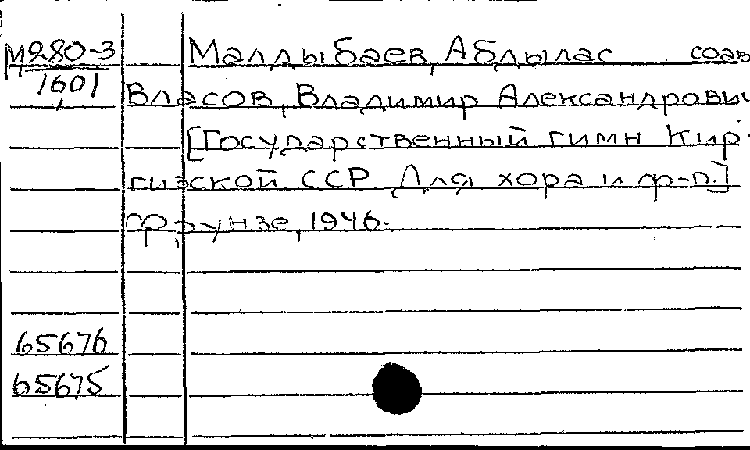 М280-3 Малдыбаев, Абдылас соав
1601 Власов, Владимир Александрович
[Государственный гимн Кир-
гизской ССР Для хора и ф-п.]
Фрунзе, 1946.
65676
65675